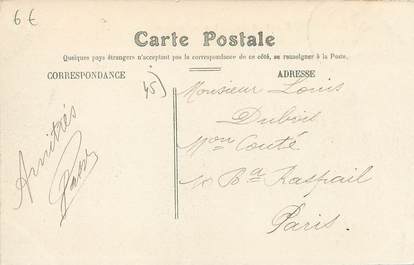 6€
Carte Postale
Quelques pays étrangers n'acceptant pas la correspondance de ce côté, se renseigner à la Poste.
CORRESPONDANCE
ADRESSE
45)
Amitiés
Monsieur Louis
Dubois
Mon Couté
Bd Raspail
Paris.